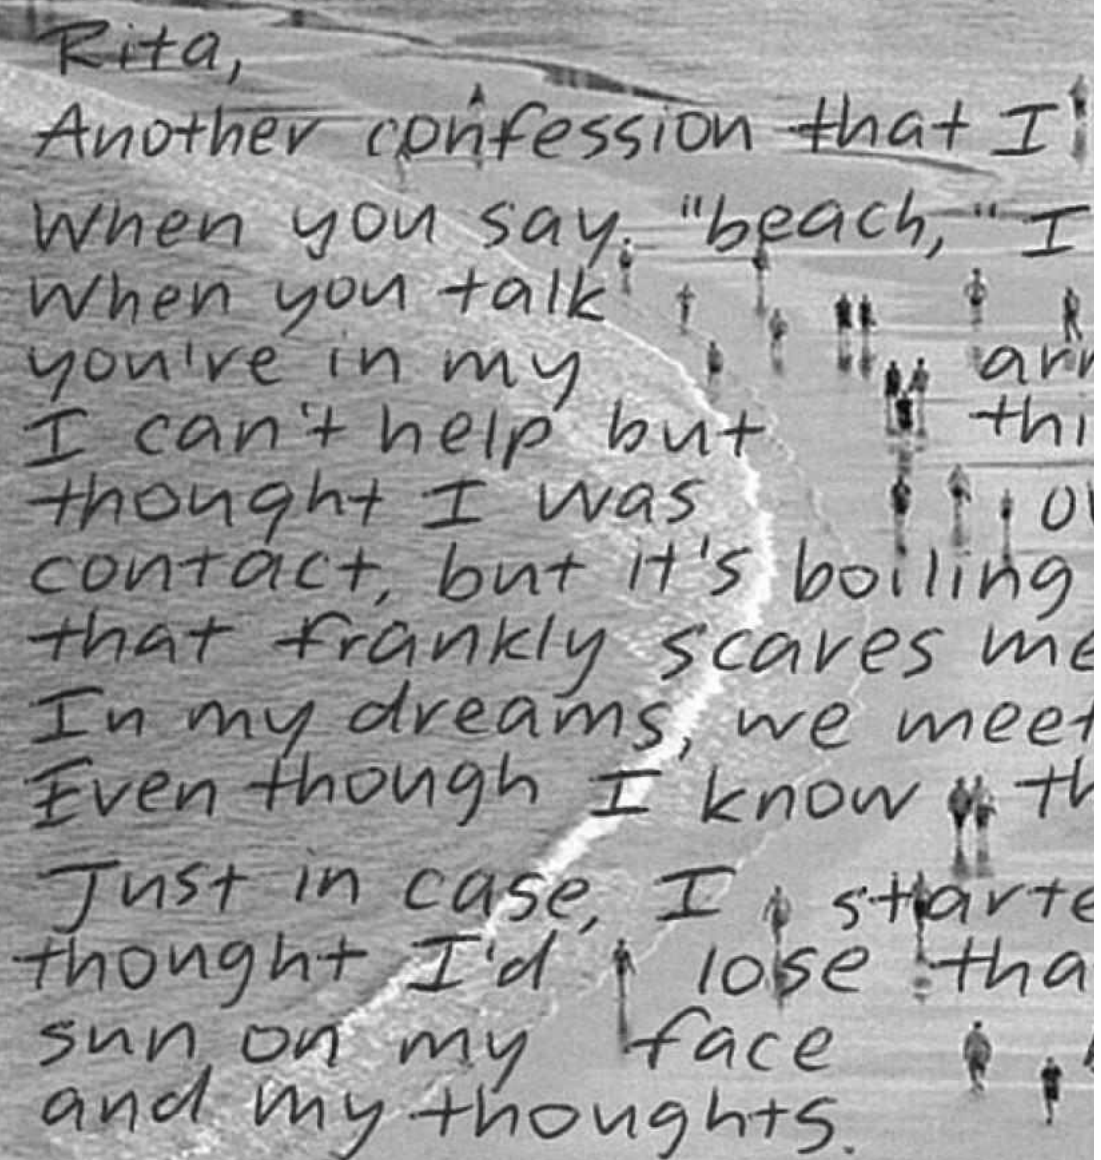 Rita,
Another confession that I
When you say, "beach," I
When you talk
you're in my arr
I can't help but thi
thought I was ov
contact, but it's boiling
that frankly scares me
In my dreams, we meet
Even though I know th
Just in case, I starte
thought I'd lose tha
sun on my face
and my thoughts.